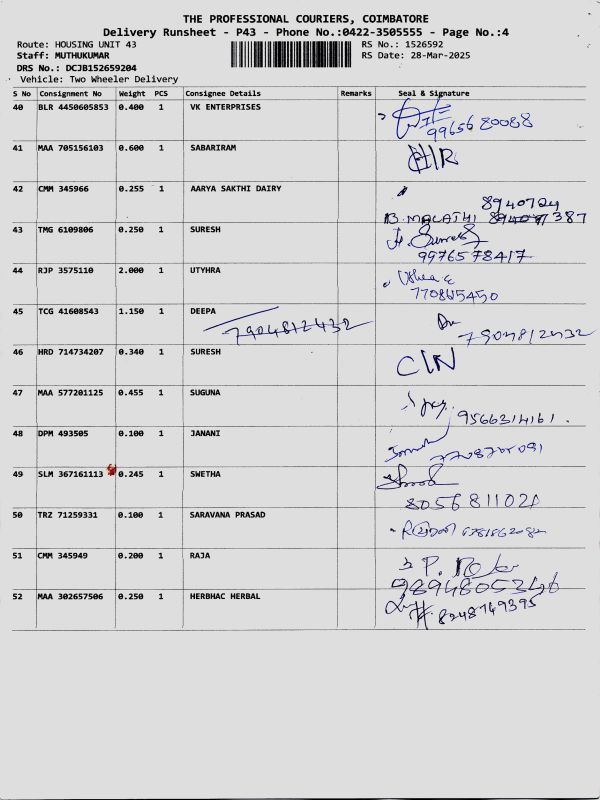 THE PROFESSIONAL COURIERS, COIMBATORE
Delivery Runsheet - P43 - Phone No.:0422-3505555 - Page No.:4
Route: HOUSING UNIT 43 RS No.: 1526592
Staff: MUTHUKUMAR RS Date: 28-Mar-2025
DRS No.: DCJB152659204
Vehicle: Two Wheeler Delivery
S No Consignment No Weight PCS Consignee Details Remarks Seal & Signature
40 BLR 4450605853 0.400 1 VK ENTERPRISES
99656 80088
41 MAA 705156103 0.600 1 SABARIRAM
42 CMM 345966 0.255 1 AARYA SAKTHI DAIRY
8940724
B.MALATHI 387
43 TMG 6109806 0.250 1 SURESH
9976578417
44 RJP 3575110 2.000 1 UTYHRA
45 TCG 41608543 1.150 1 DEEPA
7904812432 7904812432
46 HRD 714734207 0.340 1 SURESH
47 MAA 577201125 0.455 1 SUGUNA
9566314161.
48 DPM 493505 0.100 1 JANANI
49 SLM 367161113 0.245 1 SWETHA
8056811021
50 TRZ 71259331 0.100 1 SARAVANA PRASAD
51 CMM 345949 0.200 1 RAJA
9894805346
52 MAA 302657506 0.250 1 HERBHAC HERBAL
8248749395